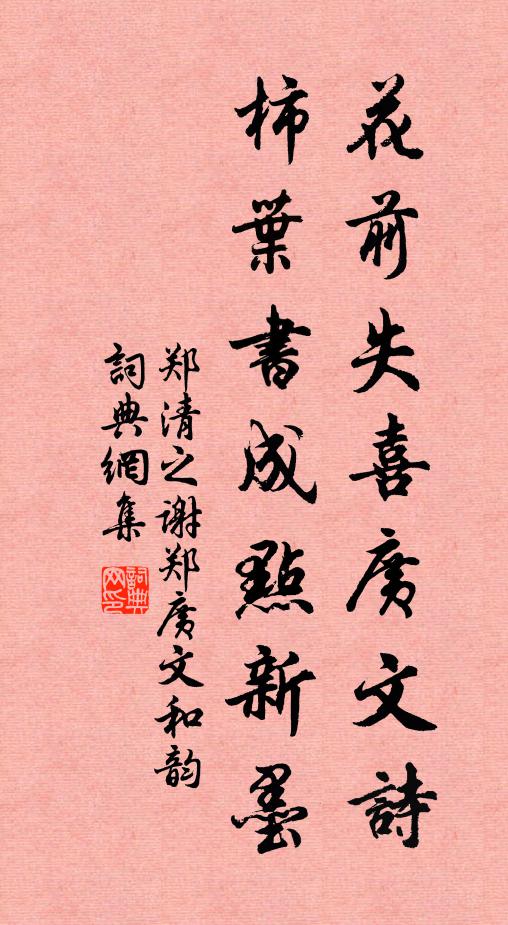 花前失喜廣文詩
柿葉書成點新墨
郑清之谢郑廣文和韵
詞典網集
詞典网印